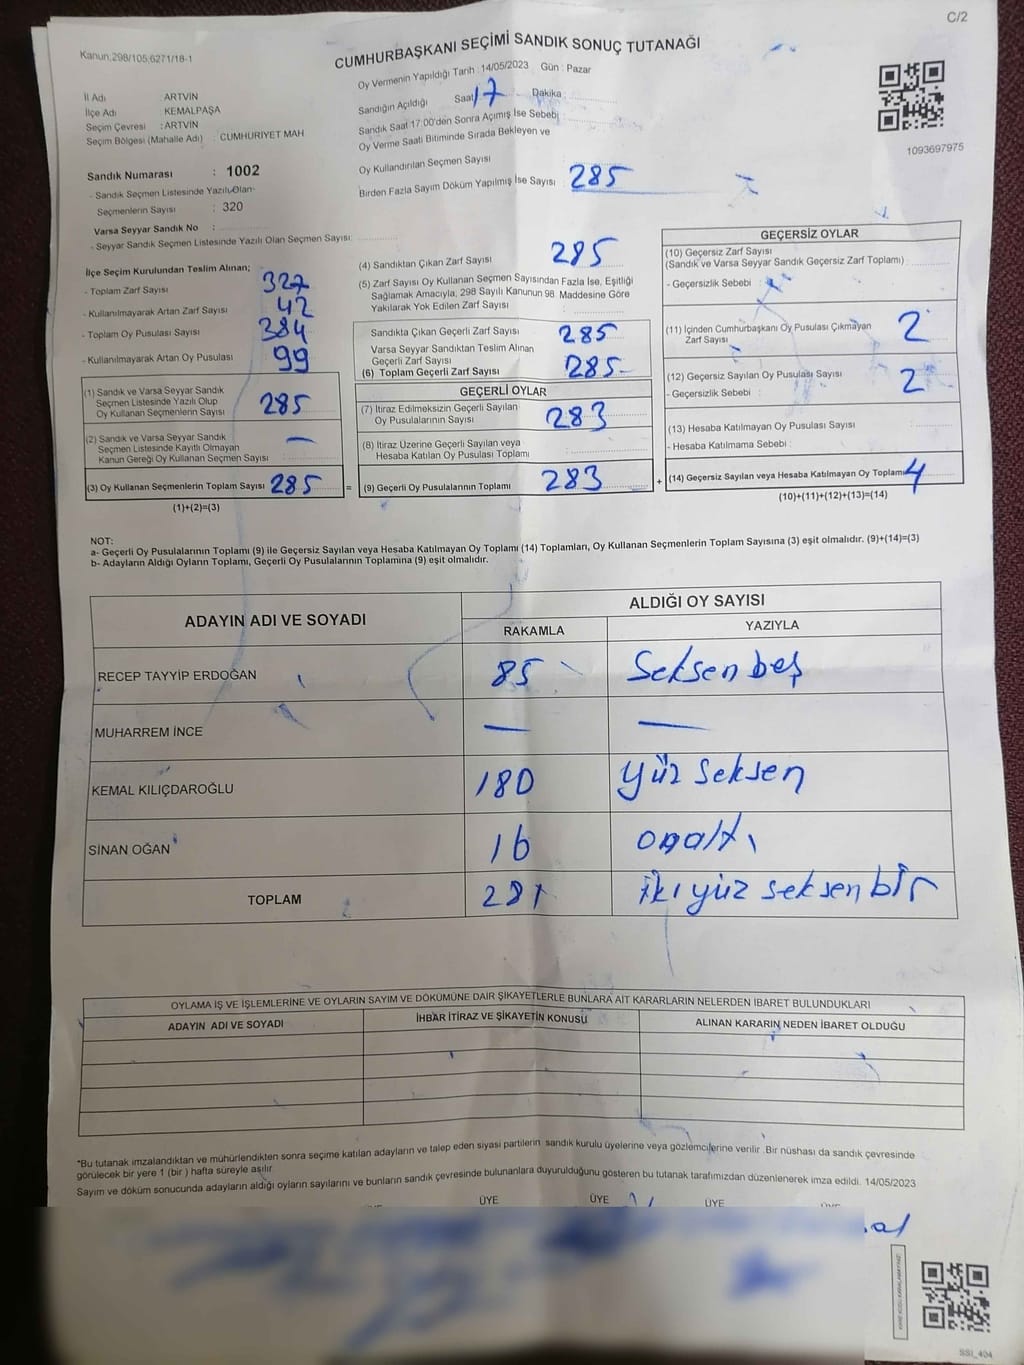 C/2
Kanun:298/105,6271/18-1
CUMHURBAŞKANI SEÇİMİ SANDIK SONUÇ TUTANAĞI
Oy Vermenin Yapıldığı Tarih : 14/05/2023 Gün : Pazar
İl Adı ARTVİN
İlçe Adı KEMALPAŞA
Seçim Çevresi : ARTVİN
Seçim Bölgesi (Mahalle Adı) : CUMHURİYET MAH
Sandığın Açıldığı Saat 17 Dakika :
Sandık Saat 17:00'den Sonra Açımış İse Sebebi :
Oy Verme Saati Bitiminde Sırada Bekleyen ve
Oy Kullandırılan Seçmen Sayısı
Birden Fazla Sayım Döküm Yapılmış İse Sayısı : 285
1093697975
Sandık Numarası : 1002
- Sandık Seçmen Listesinde Yazılı Olan
Seçmenlerin Sayısı : 320
Varsa Seyyar Sandık No :
- Seyyar Sandık Seçmen Listesinde Yazılı Olan Seçmen Sayısı:
İlçe Seçim Kurulundan Teslim Alınan;
- Toplam Zarf Sayısı 327
- Kullanılmayarak Artan Zarf Sayısı 42
- Toplam Oy Pusulası Sayısı 384
- Kullanılmayarak Artan Oy Pusulası 99
(1) Sandık ve Varsa Seyyar Sandık
Seçmen Listesinde Yazılı Olup
Oy Kullanan Seçmenlerin Sayısı 285
(2) Sandık ve Varsa Seyyar Sandık
Seçmen Listesinde Kayıtlı Olmayan
Kanun Gereği Oy Kullanan Seçmen Sayısı : —
(3) Oy Kullanan Seçmenlerin Toplam Sayısı 285 =
(1)+(2)=(3)
(4) Sandıktan Çıkan Zarf Sayısı 285
(5) Zarf Sayısı Oy Kullanan Seçmen Sayısından Fazla İse, Eşitliği
Sağlamak Amacıyla, 298 Sayılı Kanunun 98. Maddesine Göre
Yakılarak Yok Edilen Zarf Sayısı :
Sandıkta Çıkan Geçerli Zarf Sayısı 285
Varsa Seyyar Sandıktan Teslim Alınan
Geçerli Zarf Sayısı
(6) Toplam Geçerli Zarf Sayısı 285
GEÇERLİ OYLAR
(7) İtiraz Edilmeksizin Geçerli Sayılan
Oy Pusulalarının Sayısı 283
(8) İtiraz Üzerine Geçerli Sayılan veya
Hesaba Katılan Oy Pusulası Toplamı
(9) Geçerli Oy Pusulalarının Toplamı 283 +
GEÇERSİZ OYLAR
(10) Geçersiz Zarf Sayısı
(Sandık ve Varsa Seyyar Sandık Geçersiz Zarf Toplamı) :
- Geçersizlik Sebebi :
(11) İçinden Cumhurbaşkanı Oy Pusulası Çıkmayan
Zarf Sayısı 2
(12) Geçersiz Sayılan Oy Pusulası Sayısı 2
- Geçersizlik Sebebi :
(13) Hesaba Katılmayan Oy Pusulası Sayısı
- Hesaba Katılmama Sebebi :
(14) Geçersiz Sayılan veya Hesaba Katılmayan Oy Toplamı 4
(10)+(11)+(12)+(13)=(14)
NOT:
a- Geçerli Oy Pusulalarının Toplamı (9) ile Geçersiz Sayılan veya Hesaba Katılmayan Oy Toplamı (14) Toplamları, Oy Kullanan Seçmenlerin Toplam Sayısına (3) eşit olmalıdır. (9)+(14)=(3)
b- Adayların Aldığı Oyların Toplamı, Geçerli Oy Pusulalarının Toplamına (9) eşit olmalıdır.
ADAYIN ADI VE SOYADI ALDIĞI OY SAYISI
RAKAMLA YAZIYLA
RECEP TAYYİP ERDOĞAN 85 Seksen beş
MUHARREM İNCE — —
KEMAL KILIÇDAROĞLU 180 yüz seksen
SİNAN OĞAN 16 onaltı
TOPLAM 281 iki yüz seksen bir
OYLAMA İŞ VE İŞLEMLERİNE VE OYLARIN SAYIM VE DÖKÜMÜNE DAİR ŞİKAYETLERLE BUNLARA AİT KARARLARIN NELERDEN İBARET BULUNDUKLARI
ADAYIN ADI VE SOYADI İHBAR İTİRAZ VE ŞİKAYETİN KONUSU ALINAN KARARIN NEDEN İBARET OLDUĞU
*Bu tutanak imzalandıktan ve mühürlendikten sonra seçime katılan adayların ve talep eden siyasi partilerin sandık kurulu üyelerine veya gözlemcilerine verilir .Bir nüshası da sandık çevresinde
görülecek bir yere 1 (bir ) hafta süreyle asılır.
Sayım ve döküm sonucunda adayların aldığı oyların sayılarını ve bunların sandık çevresinde bulunanlara duyurulduğunu gösteren bu tutanak tarafımızdan düzenlenerek imza edildi. 14/05/2023
ÜYE ÜYE ÜYE
SSI_404